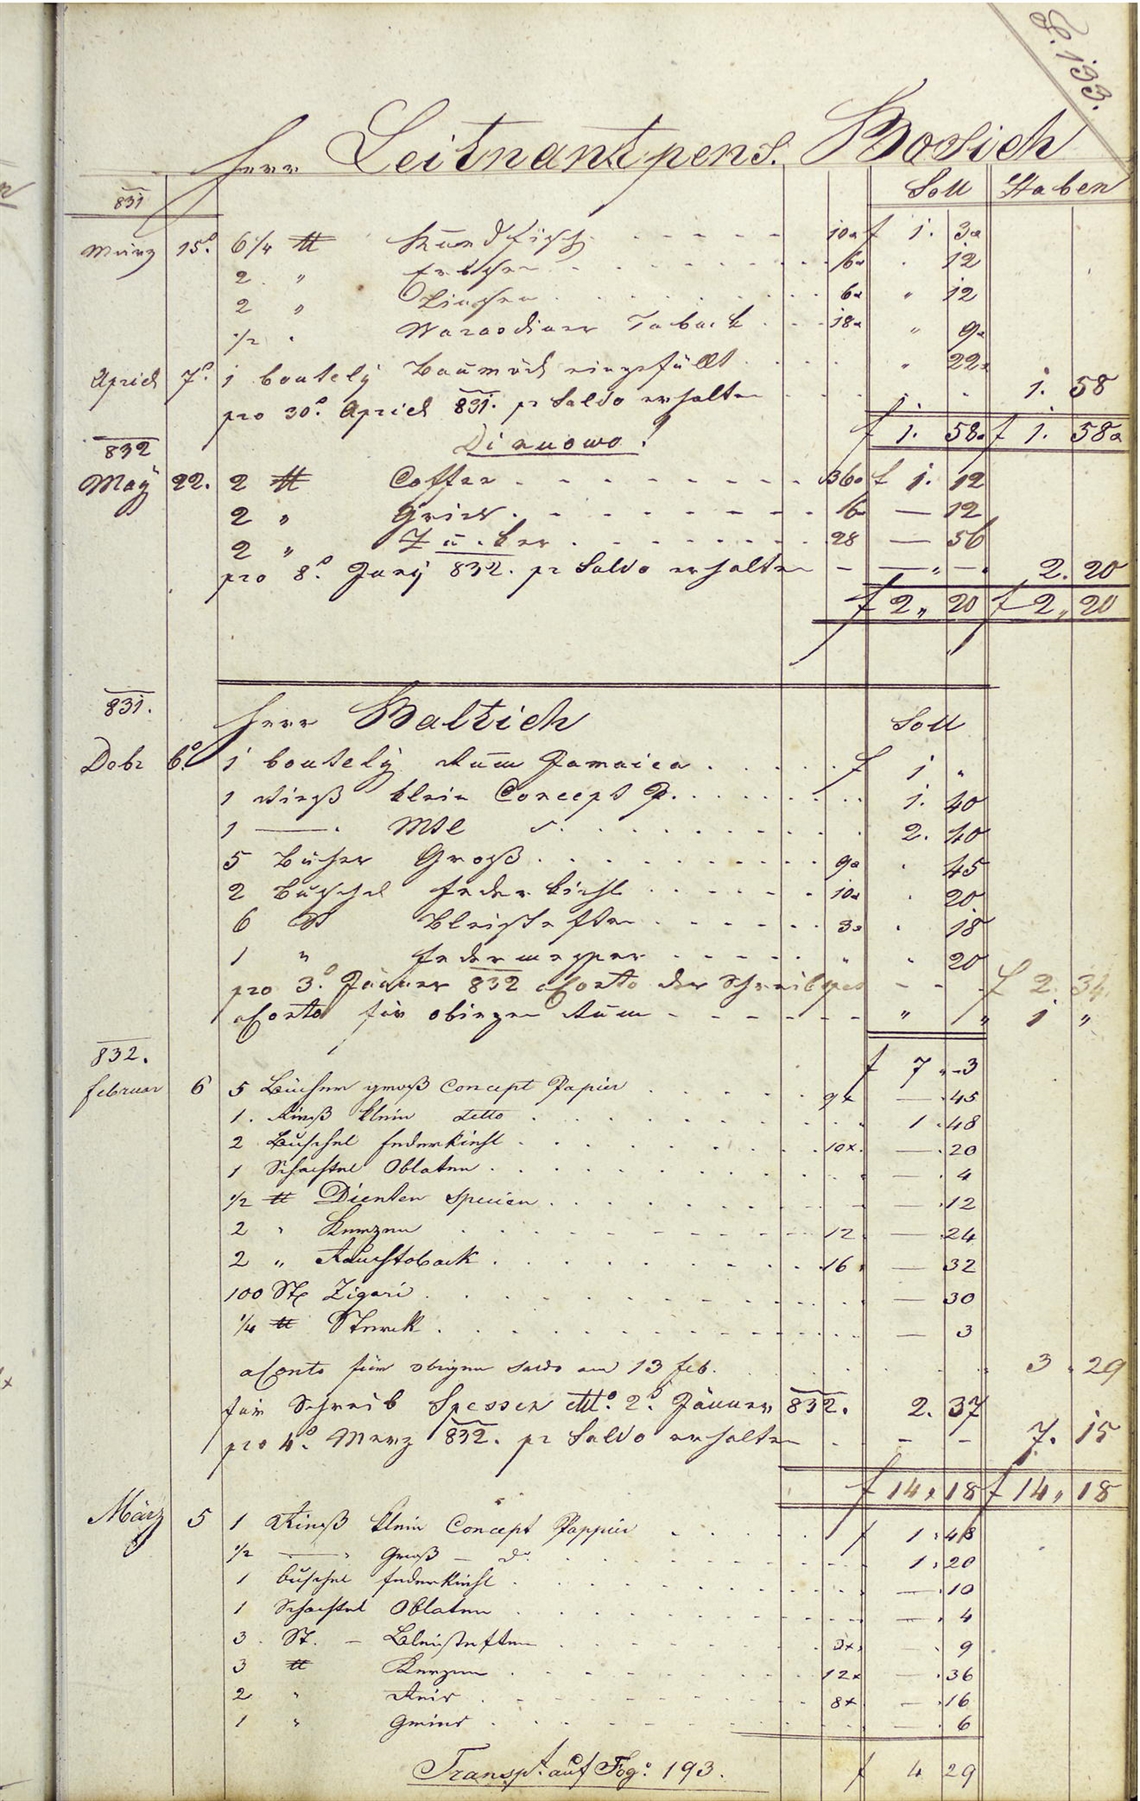 F. 133.
Herr Leitnant pens. Bosich
831 Soll Haben
März 15. 6 1/4 ℔ Stundfisch 10x f 1. 3x
2 " Erbsen 6x " 12
2 " Linsen 6x " 12
1/2 " Warasdiner Taback 18x " 9x
Aprill 7. 1 boutely Baumöhl eingefüllt " 22x
pro 30. Aprill 831. pr Saldo erhalten 1. 58
f 1. 58x f 1. 58x
832 Di nuovo!
May 22. 2 ℔ Coffee 36x f 1. 12
2 " Gries 6x — 12
2 " Zucker 28 — 56
pro 8. Juny 832. pr Saldo erhalten — — 2. 20
f 2 " 20 f 2 " 20
831. Herr Baltich Soll
Dobr 6. 1 boutely Rum Jamaica f 1 "
1 Rieß klein Concept P. 1. 40
1 — Mtl 2. 40
5 Bücher Groß 9x " 45
2 Buschl Federkiehl 10x " 20
6 St Bleistiften 3x " 18
1 " Federmesser " " 20
pro 3. Jänner 832 aConto der Schreibspes — — f 2. 34.
aConto für obigen Rum " " 1 "
832. f 7 " 3
Februar 6 5 Bücher groß Concept Papier 9x — 45
1. Rieß klein detto 1. 48
2 Buschel Federkiehl 10x — 20
1 Schachtel Oblaten — 4
1/2 ℔ Dienten Specien — 12
2 " Kerzen 12 — 24
2 " Rauchtoback 16 — 32
100 St Zigari — 30
1/4 ℔ Sterck — 3
aConto für obigen Saldo am 13 Feb. 3. 29
für Schreib Spessen 2. Jänner 832. 2. 37
pro 4. Merz 832. pr Saldo erhalten — — 7. 15
f 14 " 18 f 14 " 18
März 5 1 Rieß klein Concept Pappier f 1. 48
1/2 — Groß — do 1. 20
1 Buschel Federkiehl — 10
1 Schachtel Oblaten — 4
3. St. — Bleistiften 3x 9
3 ℔ Kerzen 12x — 36
2 " Reis 8x — 16
1 " Gries — 6
Transpt. auf Fog: 193. f 4 29